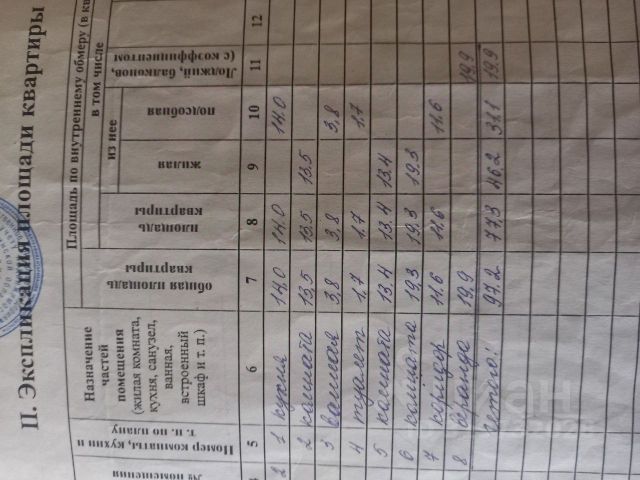 II. Экспликация площади квартиры
Площадь по внутреннему обмеру (в кв
в том числе
из нее
№ помещения
Номер комнаты, кухни и т. п. по плану
Назначение частей помещения (жилая комната, кухня, санузел, ванная, встроенный шкаф и т. п.)
общая площадь квартиры
площадь квартиры
жилая
подсобная
Лоджий, балконов, (с коэффициентом
5 6 7 8 9 10 11 12
2 1 кухня 14,0 14,0 14,0
2 комната 13,5 13,5 13,5
3 ванная 3,8 3,8 3,8
4 туалет 1,7 1,7 1,7
5 комната 13.4 13.4 13.4
6 комната 19,3 19.3 19.3
7 коридор 11.6 11.6 11.6
8 веранда 19,9 19,9
Итого: 97.2 77,3 46.2 31.1 19,9